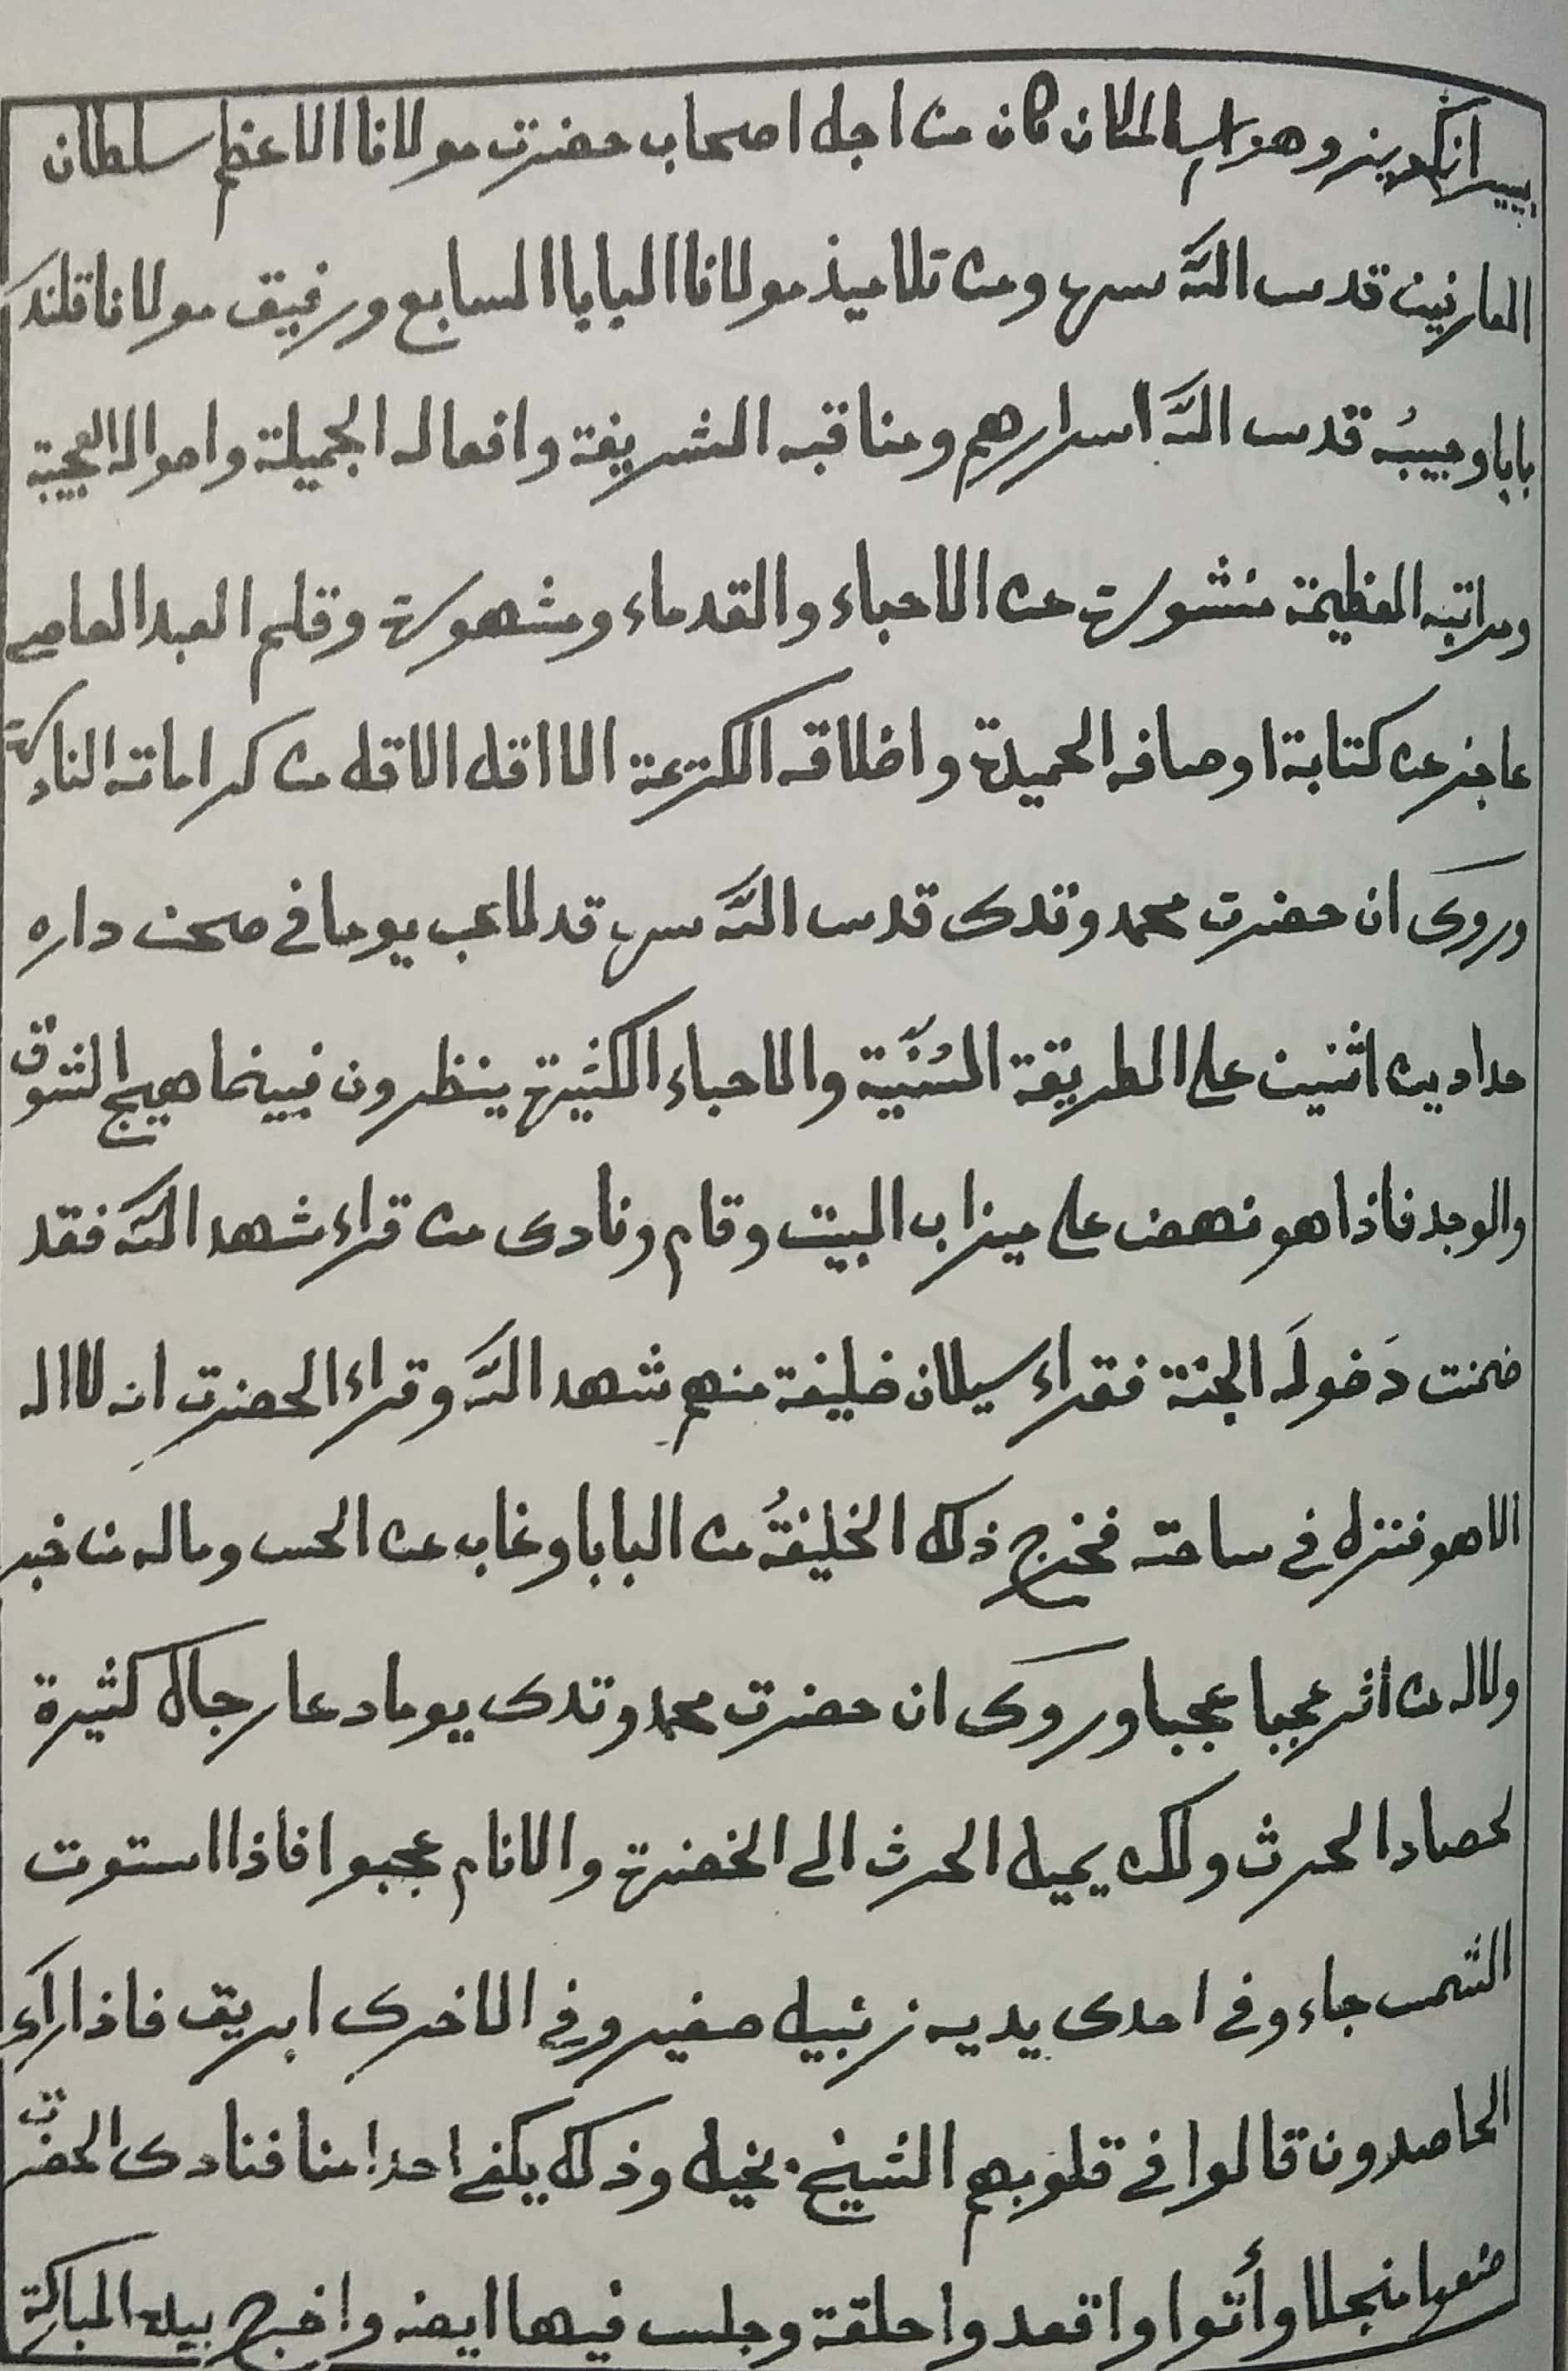 وهو اسم المكان كان من اجل اصحاب حضرت مولانا الاعظم سلطان
العارفين قدس الله سره ومن تلاميذ مولانا البابا السابع ورفيق مولانا قلندر
بابا وحبيبُه قدس الله اسرارهم ومناقبه الشريفة وافعاله الجميلة واحواله العجيبة
ومراتبه العظيمة منشورة عن الاحباء والقدماء ومشهورة وقلم العبد العاصي
عاجز عن كتابة اوصافه الحميدة واخلاقه الكريمة الا اقل الاقل من كراماته النادرة
وروى ان حضرت محمد وتدى قدس الله سره قد لاعب يوما في صحن داره
مداديين اثنين على الطريقة السُنَّية والاحباء الكثيرة ينظرون فبينما هيج الشوق
والوجد فاذا هو نهض على ميزاب البيت وقام ونادى من قراء شهد الله فقد
ضمنت دَخولَه الجنة فقراء سيلان خليفة منهم شهد الله وقراء الحضرت انه لا اله
الا هو فنزل في ساحته فخرج ذلك الخليفةُ من البابا وغاب عن الحس وماله من خبر
ولاله من اثر عجبا عجبا وروى ان حضرت محمد وتدى يوما دعا رجال كثيرة
لحصاد الحرث ولكن يميل الحرث الى الخضرة والانام عجبوا فاذا استوت
الشمس جاء وفي احدى يديه زنبيل صغير وفي الاخرى ابريق فاذا رآء
الحاصدون قالوا في قلوبهم الشيخ بخيل وذلك يكفى احدا منا فنادى الحضرت
ضعوا منجلا وأتوا واقعدوا حلقة وجلس فيها ايضه واخرج بيده المباركة